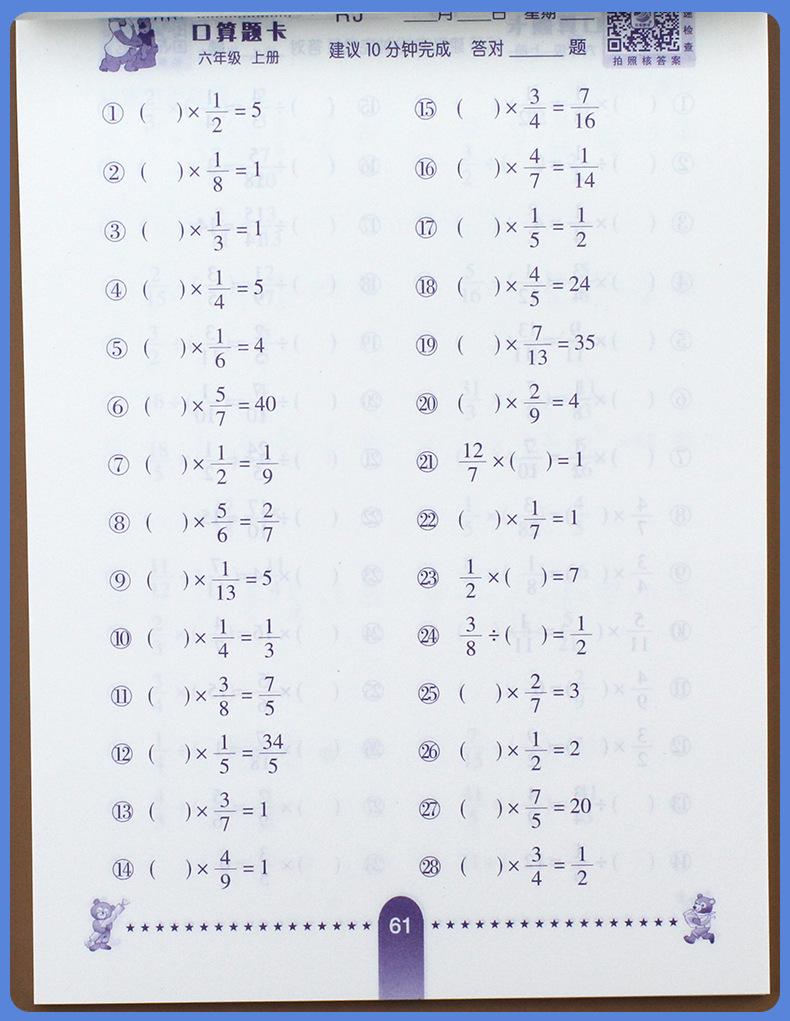 口算题卡
六年级 上册
RJ ___月___日 星期
建议10分钟完成 答对______题
速检查
拍照核答案
① (  ) × 1/2 = 5
② (  ) × 1/8 = 1
③ (  ) × 1/3 = 1
④ (  ) × 1/4 = 5
⑤ (  ) × 1/6 = 4
⑥ (  ) × 5/7 = 40
⑦ (  ) × 1/2 = 1/9
⑧ (  ) × 5/6 = 2/7
⑨ (  ) × 1/13 = 5
⑩ (  ) × 1/4 = 1/3
⑪ (  ) × 3/8 = 7/5
⑫ (  ) × 1/5 = 34/5
⑬ (  ) × 3/7 = 1
⑭ (  ) × 4/9 = 1
⑮ (  ) × 3/4 = 7/16
⑯ (  ) × 4/7 = 1/14
⑰ (  ) × 1/5 = 1/2
⑱ (  ) × 4/5 = 24
⑲ (  ) × 7/13 = 35
⑳ (  ) × 2/9 = 4
㉑ 12/7 × (  ) = 1
㉒ (  ) × 1/7 = 1
㉓ 1/2 × (  ) = 7
㉔ 3/8 ÷ (  ) = 1/2
㉕ (  ) × 2/7 = 3
㉖ (  ) × 1/2 = 2
㉗ (  ) × 7/5 = 20
㉘ (  ) × 3/4 = 1/2
61